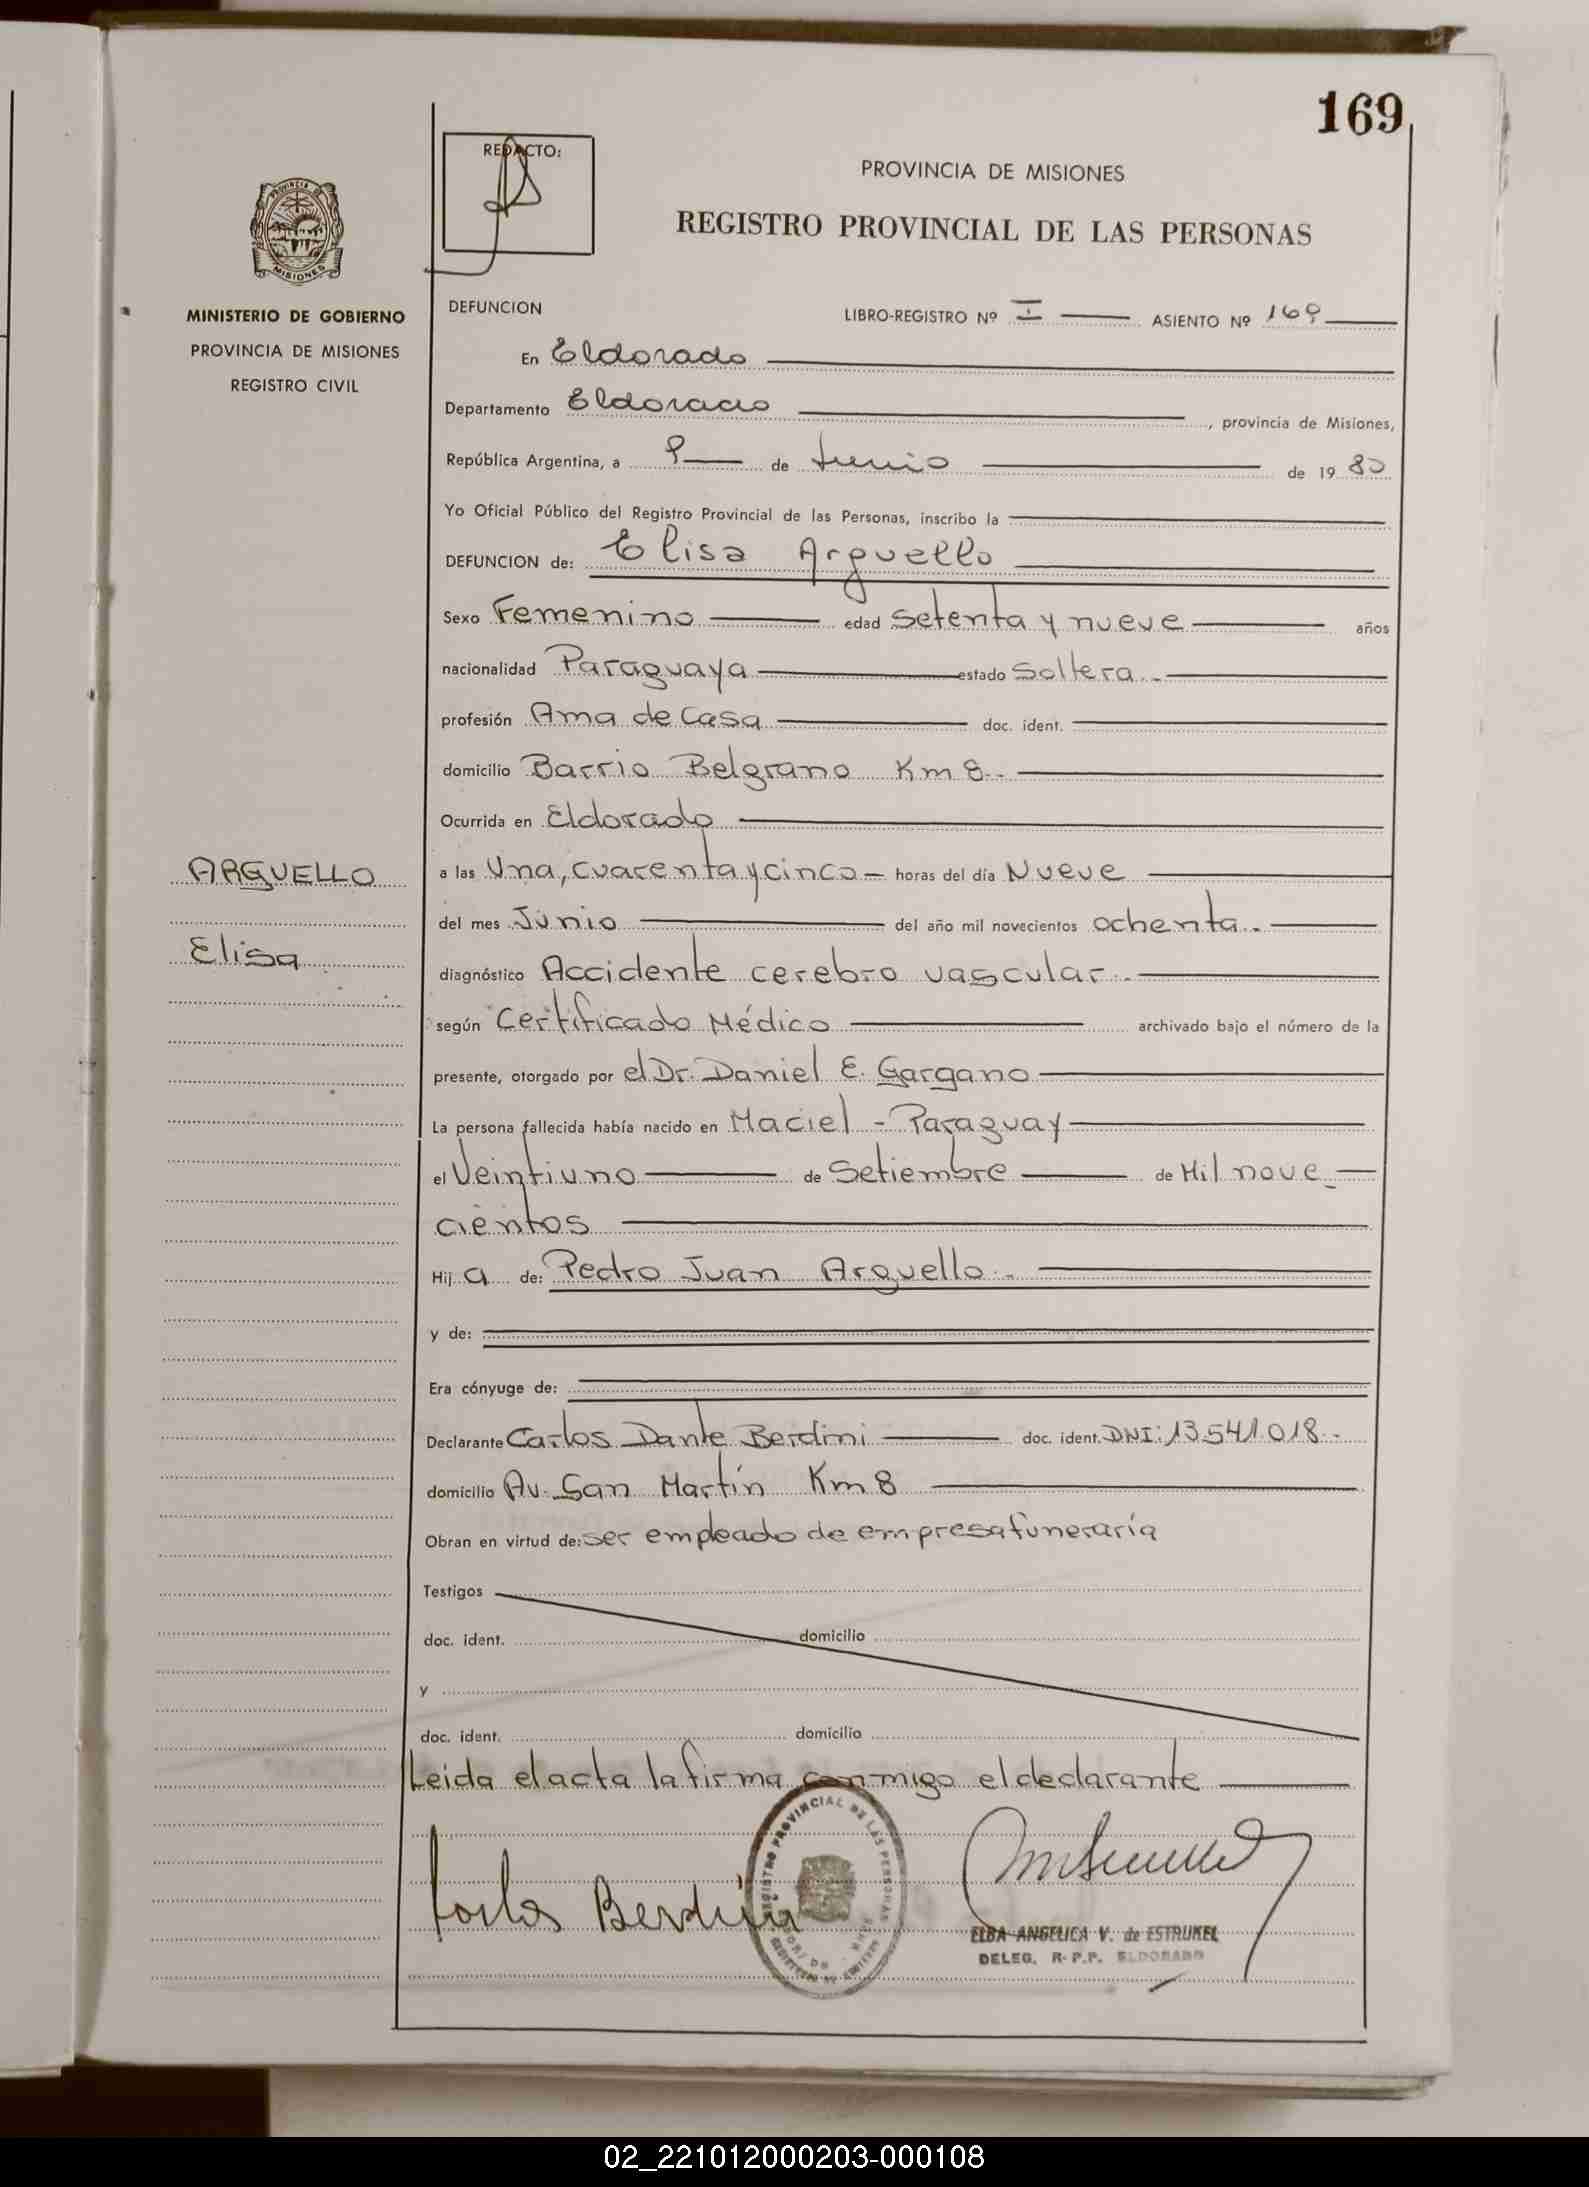 169
REDACTO:
PROVINCIA DE MISIONES
REGISTRO PROVINCIAL DE LAS PERSONAS
PROVINCIA DE
MISIONES
MINISTERIO DE GOBIERNO
PROVINCIA DE MISIONES
REGISTRO CIVIL
DEFUNCION
LIBRO-REGISTRO Nº I ASIENTO Nº 169
En Eldorado
Departamento Eldorado, provincia de Misiones,
República Argentina, a 9 de Junio de 1980
Yo Oficial Público del Registro Provincial de las Personas, inscribo la
DEFUNCION de: Elisa Arguello
Sexo Femenino edad setenta y nueve años
nacionalidad Paraguaya estado Soltera.-
profesión Ama de Casa doc. ident.
domicilio Barrio Belgrano Km 8.-
Ocurrida en Eldorado
ARGUELLO
a las Una, cuarenta y cinco horas del día Nueve
del mes Junio del año mil novecientos ochenta.-
Elisa
diagnóstico Accidente cerebro vascular.-
según Certificado Médico archivado bajo el número de la
presente, otorgado por el Dr. Daniel E. Gargano
La persona fallecida había nacido en Maciel - Paraguay
el Veintiuno de Setiembre de Mil nove-
cientos
Hij a de: Pedro Juan Arguello.-
y de:
Era cónyuge de:
Declarante Carlos Dante Berdini doc. ident. DNI: 13.541.018.-
domicilio Av. San Martín Km 8
Obran en virtud de: ser empleado de empresa funeraria
Testigos
doc. ident. domicilio
y
doc. ident. domicilio
Leida el acta la firma conmigo el declarante
REGISTRO PROVINCIAL DE LAS PERSONAS
Carlos Berdini
ELBA ANGELICA V. de ESTRUKEL
DELEG. R.P.P. ELDORADO
02_221012000203-000108